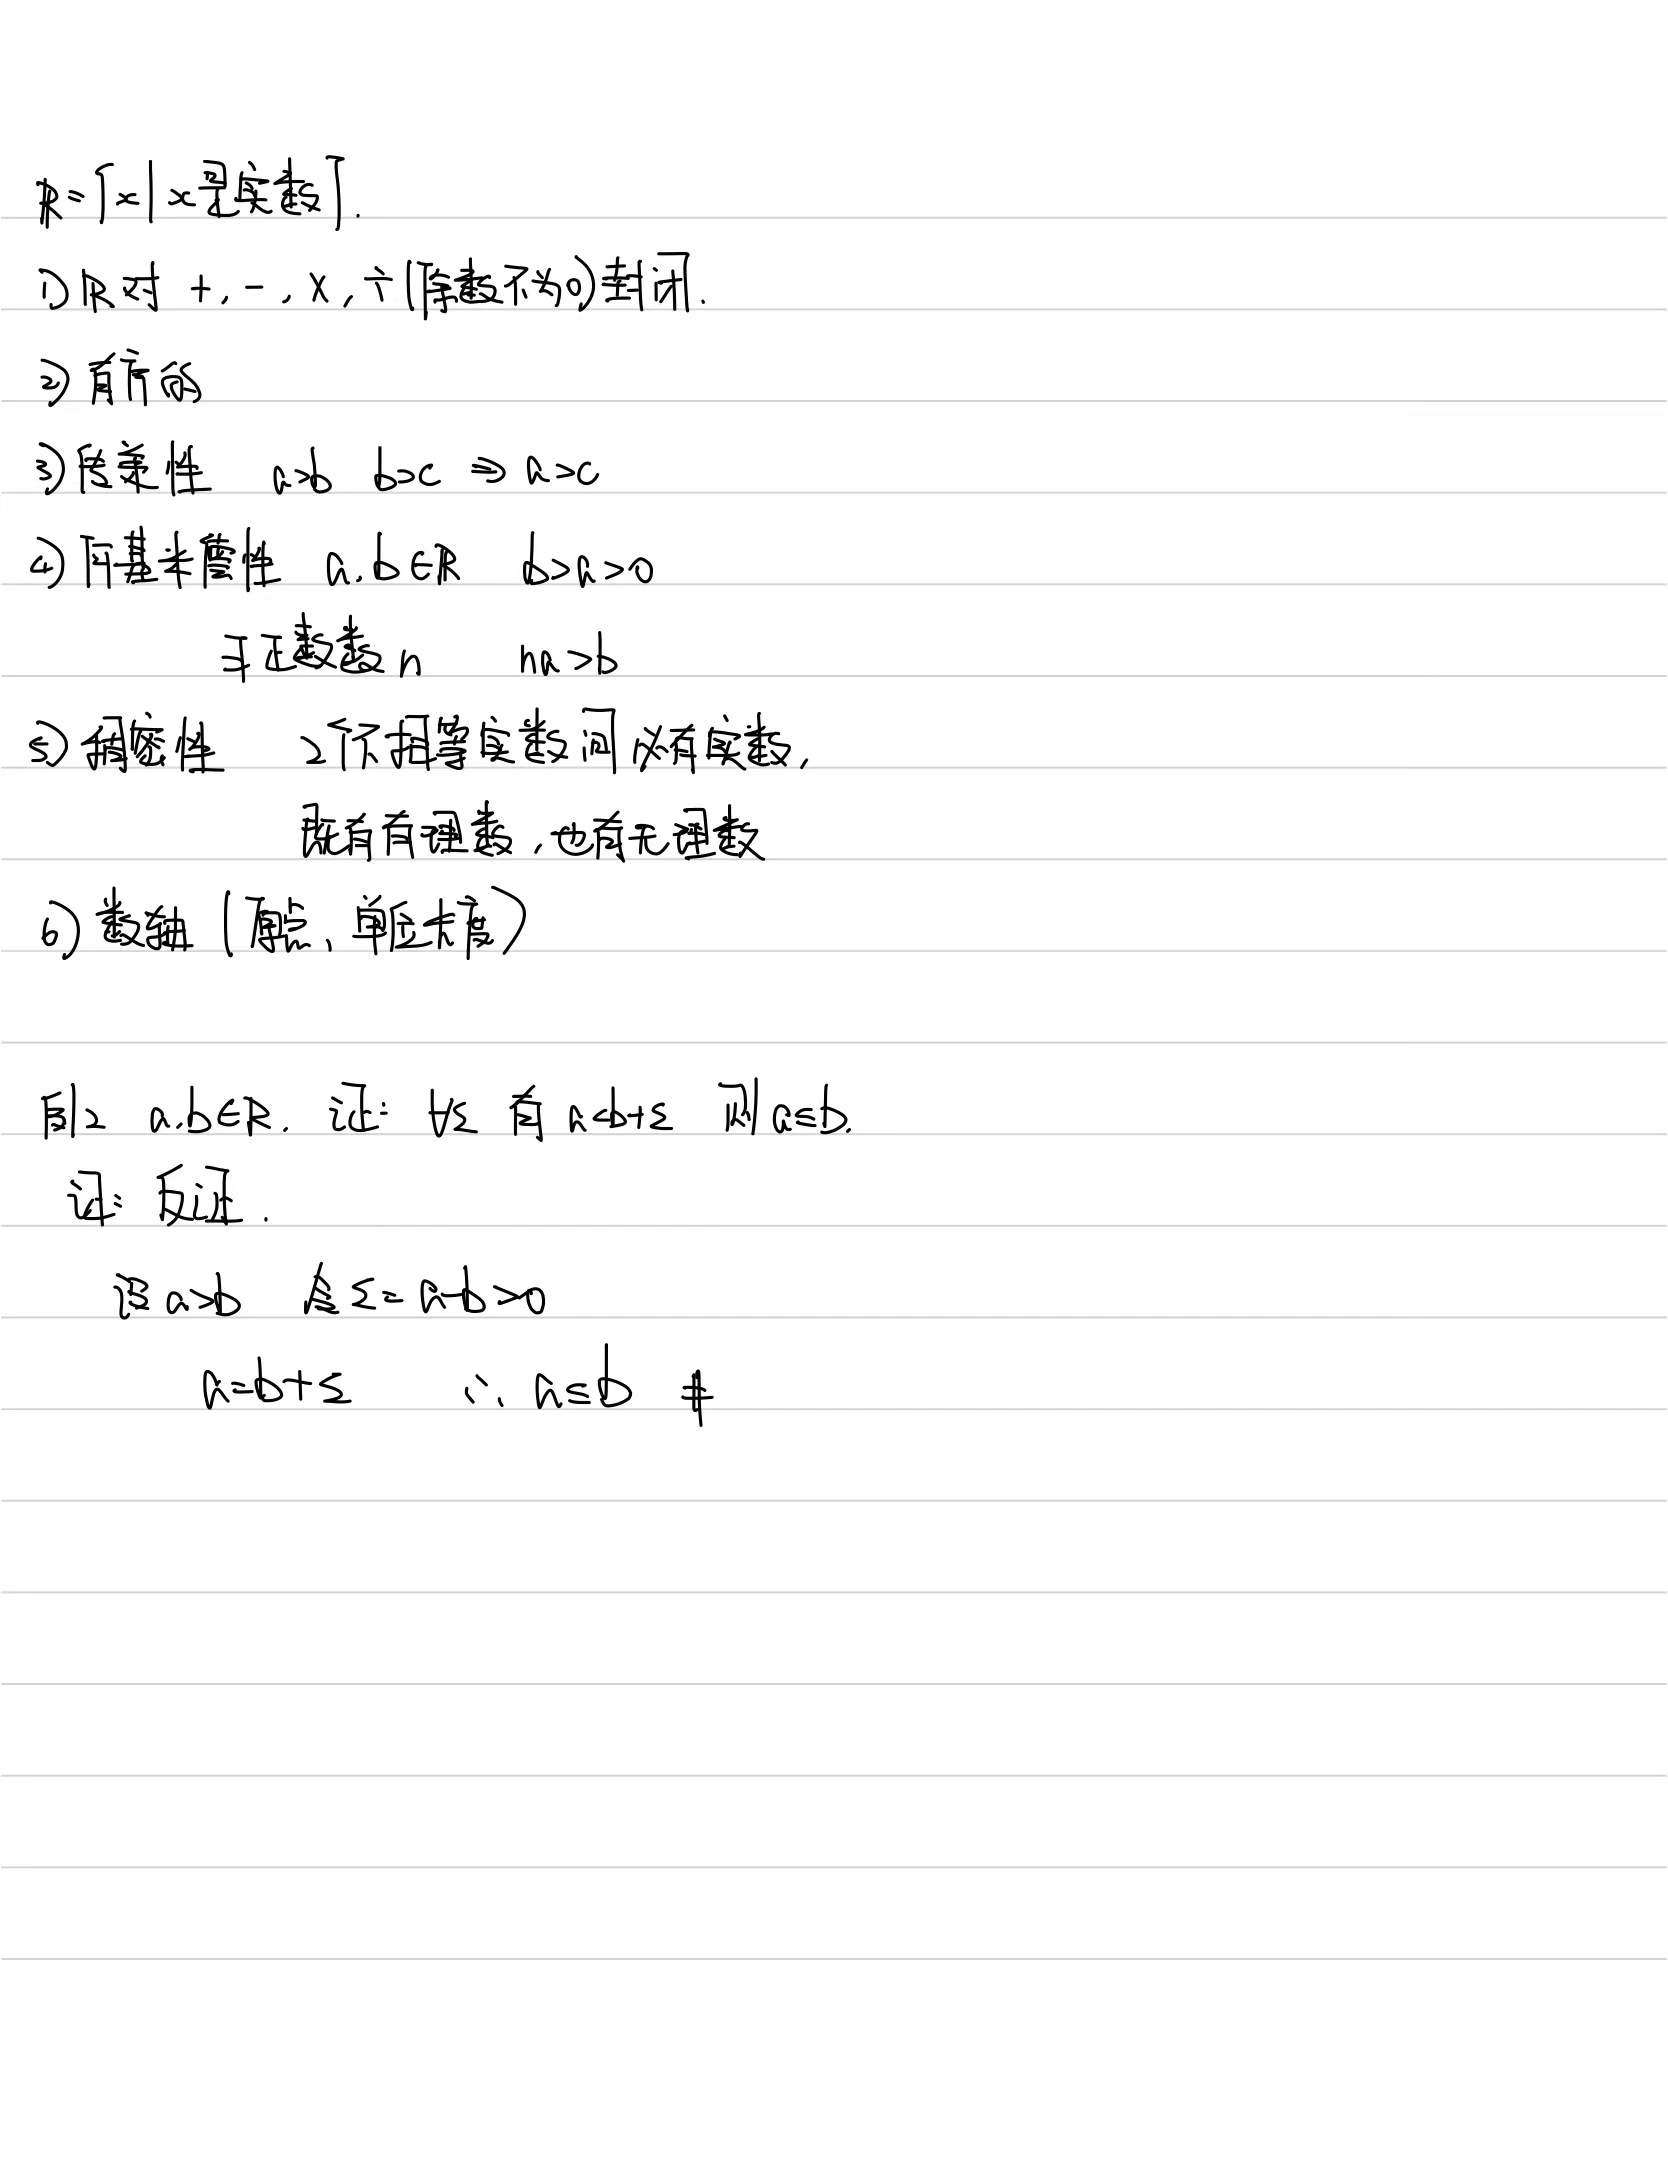 R={x|x是实数}.
1) R对 +, -, ×, ÷(除数不为0)封闭.
2) 有序的
3) 传递性 a>b b>c ⇒ a>c
4) 阿基米德性 a,b∈R b>a>0
∃正数数n na>b
5) 稠密性 2个不相等实数间必有实数,
既有有理数,也有无理数
6) 数轴 (原点、单位长度)
例2 a,b∈R. 证: ∀ε 有 a<b+ε 则a≤b.
证: 反证.
设a>b 令ε=a-b>0
a=b+ε ∴ a≤b #